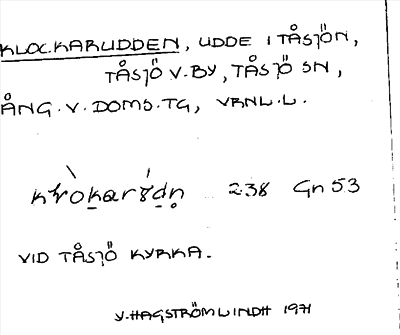 KLOCKARUDDEN, UDDE I TÅSJÖN,
TÅSJÖ V.BY, TÅSJÖ SN,
ÅNG.V.DOMS.TG, VRNL.L.
238 Gn 53
VID TÅSJÖ KYRKA.
Y.HAGSTRÖM LINDH 1971